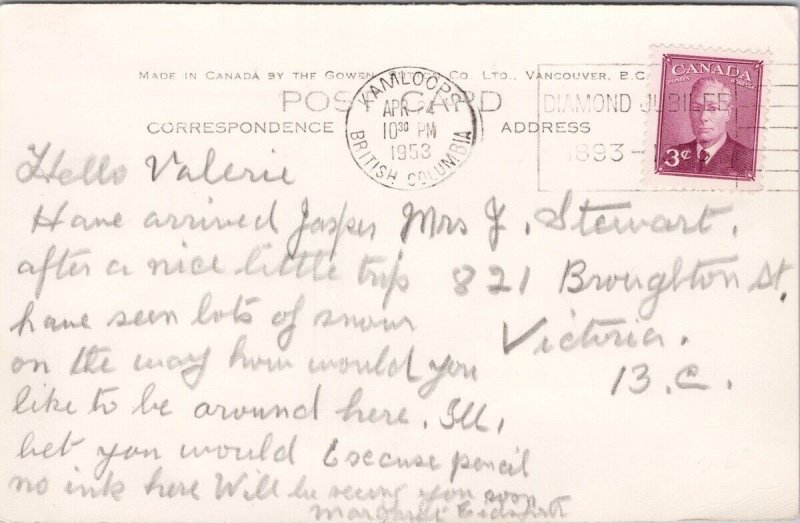 MADE IN CANADA BY THE GOWEN CO. LTD., VANCOUVER, B.C.
POST CARD
CORRESPONDENCE
ADDRESS
KAMLOOPS
APR
10 30 PM
1953
BRITISH COLUMBIA
DIAMOND JUBILEE
1893-
CANADA
3¢
Hello Valerie
Have arrived Jasper
after a nice little trip
have seen lots of snow
on the way how would you
like to be around here. Ill,
bet you would Escuse pencil
no ink here Will be seeing you soon
Margaret
Mrs J. Stewart.
821 Broughton St,
Victoria.
B.C.